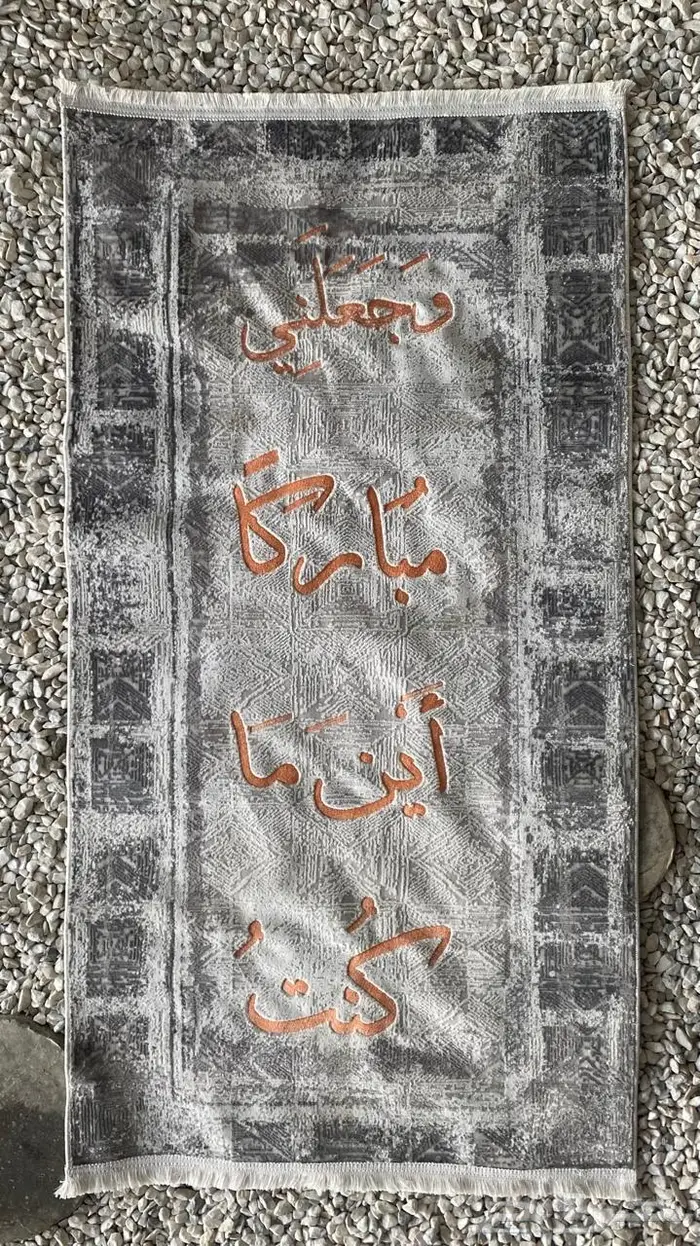 وَجَعَلَنِي
مُبارَكًا
أَينَ مَا
كُنتُ